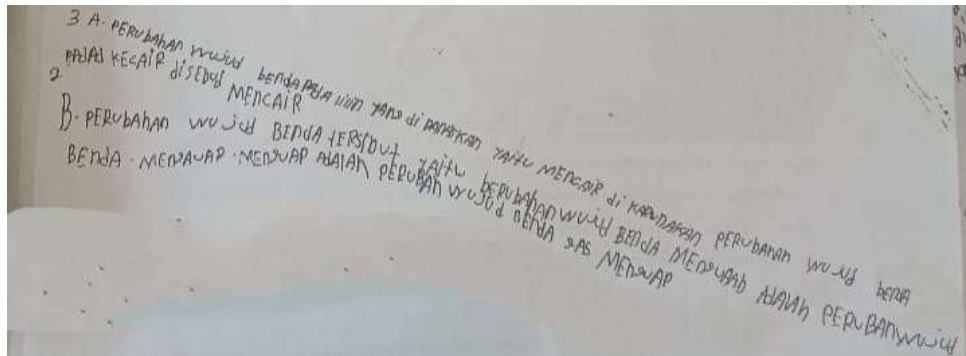 3 A. PERUBAHAN WUJUD BENDA PADA LILIN YANG di PANASKAN YAITU MENCAIR di KARENAKAN PERUBAHAN WUJUD BENDA
PADAD KECAIR diSEBUd MENCAIR
2
B. PERUBAHAN WUJUd BENdA tERSEbUt YAITU bERUbAHAN WUJUd BENdA MENGUAP AdALAh PERUBAN WUJUd
BENdA. MENGUAP. MENGUAP AdALAh PERUBAN WUJUd BENdA GAS MENGUAP